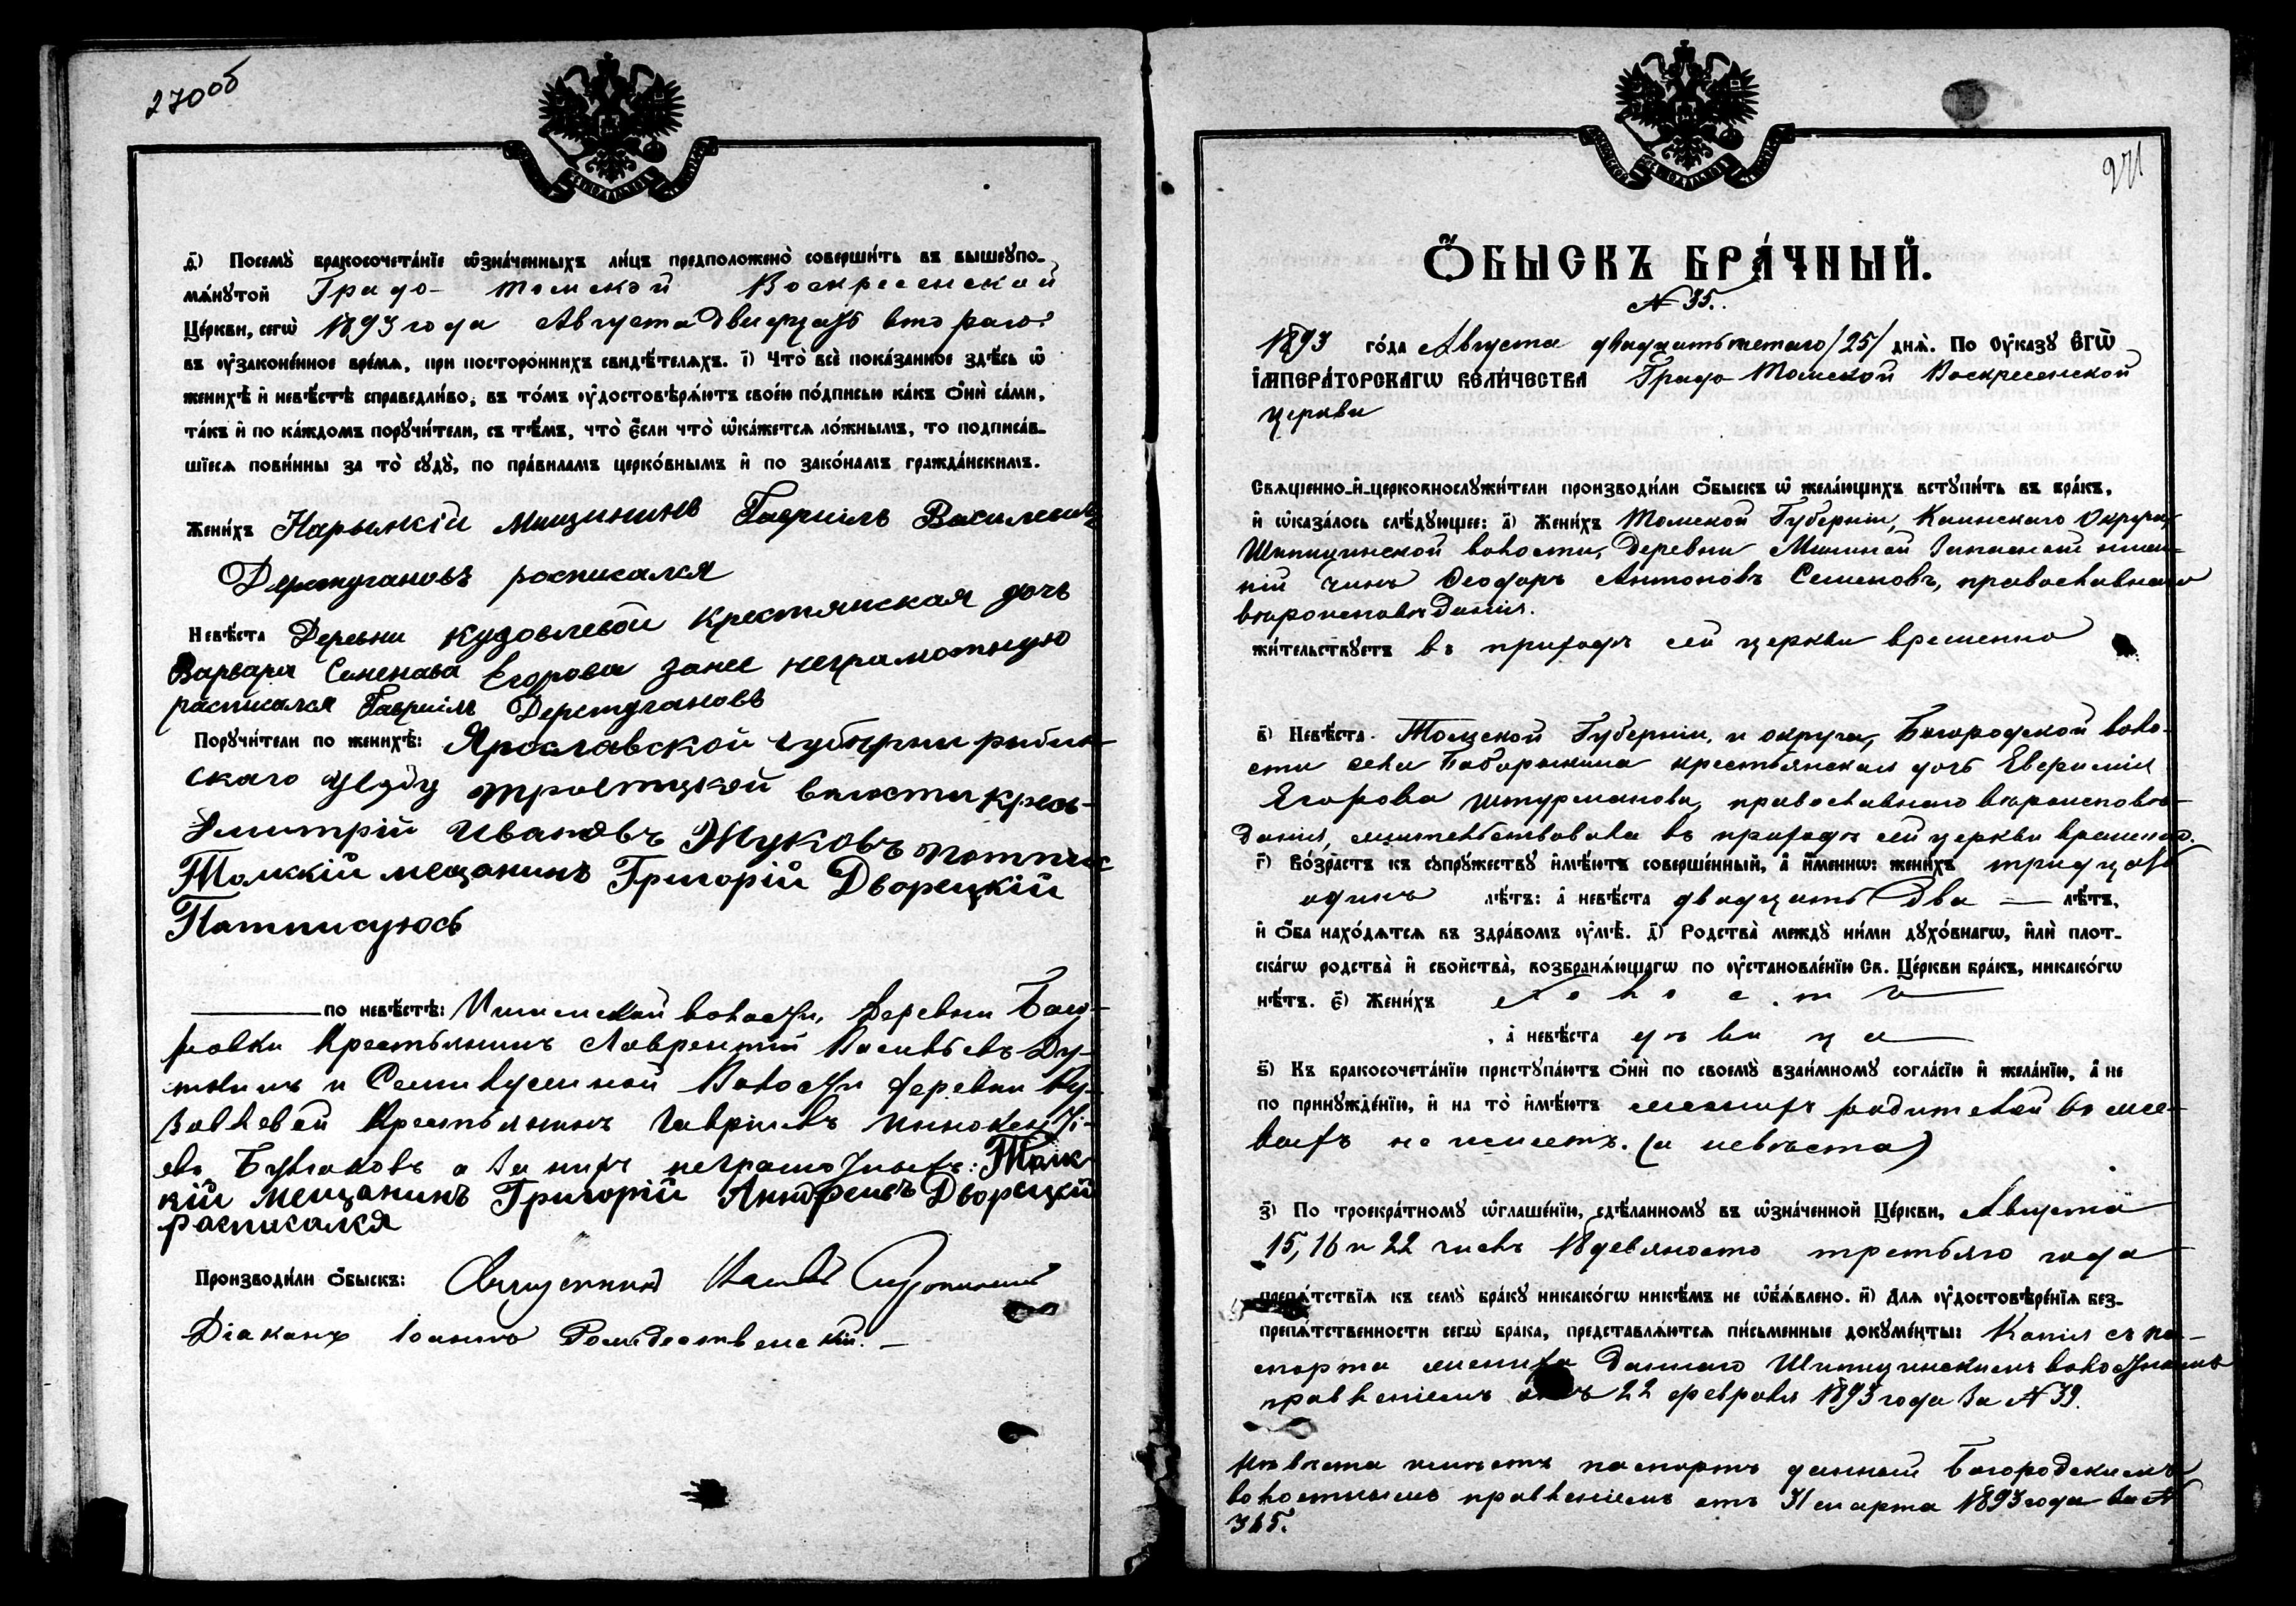 270об
д҃) Посемꙋ̀ бракосочета́нїе ѡ҆зна́ченныхъ ли́цъ предположено̀ соверши́ть въ вышеꙋпо-
мѧ́нꙋтой Градо-Томской Воскресенской
Це́ркви, сегѡ̀ 1893 года Августа двадцать втораго
въ ᲂу҆законе́нное вре́мѧ, при посторо́ннихъ свидѣ́телѧхъ. і҃) Что̀ всѐ пока́занное здѣ́сь ѡ҆
женихѣ̀ и҆ невѣ́стѣ справедли́во, въ то́мъ ᲂу҆достовѣрѧ́ютъ свое́ю по́дписью ка́къ ѻ҆нѝ са́ми,
та́къ и҆ по ка́ждомъ порꙋчи́тели, съ тѣ́мъ, что̀ є҆́сли что̀ ѡ҆ка́жетсѧ ло́жнымъ, то подписа́в-
шїесѧ пови́нны за то̀ сꙋдꙋ̀, по пра́виламъ церко́внымъ и҆ по зако́намъ гражда́нскимъ.
Жени́хъ Нарымкій Мищининъ Гавриілъ Василевичъ
Дерстугановъ росписался
Невѣ́ста Деревни Кузовлевой Крестянская дочъ
Варвара Семенава Егорова занее неграмотную
расписался Гавриілъ Дерстугановъ
Порꙋчи́тели по женихѣ̀: Ярославской губерни рыбин-
скаго уезду троетцкой валости крес-
Дмитрій Ивановъ Жуковъ
Томккій мещанинъ Григорій Дворецкій
Патписуюсь
по невѣ́стѣ: Ишимской волости, деревни Баго-
ровки Крестьянинъ Лаврентій Васильевъ Ду-
и Семилужной Волости деревни Ку-
зовлевой Крестьянинъ Гавріилъ Инокенті-
евъ Булгаковъ а за нихъ неграмотныхъ: Томк-
кій мещанинъ Григорій Андреивъ Дворецкій
расписался
Производи́ли ѻ҆́быскъ: Священникъ
Діаконъ Іоаннъ Рождественскій. –
271
Ѻ҆БЫСКЪ БРА́ЧНЫЙ.
№ 35.
1893 го́да Августа двадцатьпятаго /25/ днѧ̀. По ᲂу҆ка́зꙋ Є҆ГѠ̀
І҆МПЕРА́ТОРСКАГѠ ВЕЛИ́ЧЕСТВА Градо-Томской Воскресенской
церкви
Свѧще́нно-и҆-церковнослꙋжи́тели производи́ли ѻ҆́быскъ ѡ҆ жела́ющихъ встꙋпи́ть въ бра́къ,
и҆ ѡ҆каза́лось слѣ́дꙋющее: а҃) Жени́хъ Томской Губерніи, Каинскаго Округа,
Шипицинской волости, деревни Мининой Запасной ниж-
ній чинъ Ѳеодоръ Антоновъ Семеновъ, православнаго
вѣроисповѣданія.
жи́тельствꙋетъ въ приходѣ сей церкви временно
в҃) Невѣ́ста Томской Губерніи, и округа, Богородской воло-
сти села Бабарыкина крестьянская дочь Евфимія
Егорова Штурманова, православнаго вѣроисповѣ-
данія, жительствовала въ приходѣ сей церкви временно.
г҃) Во́зрастъ къ сꙋпрꙋ́жествꙋ и҆мѣ́ютъ соверше́нный, а҆ и҆́меннѡ: жени́хъ тридцать
одинъ лѣ́тъ: а҆ невѣ́ста двадцать два — лѣ́тъ,
и҆ ѻ҆́ба нахо́дѧтсѧ въ здра́вомъ ᲂу҆мѣ̀. д҃) Родства̀ междꙋ̀ ни́ми дꙋхо́внагѡ, и҆лѝ плот-
ска́гѡ родства̀ и҆ свойства̀, возбранѧ́ющагѡ по ᲂу҆становле́нїю Св. Це́ркви бра́къ, никако́гѡ
нѣ́тъ. є҃) Жени́хъ Холостъ
, а҆ невѣ́ста дѣвица
ѕ҃) Къ бракосочета́нїю пристꙋпа́ютъ ѻ҆нѝ по своемꙋ̀ взаи́мномꙋ согла́сїю и҆ жела́нїю, а҆ не
по принꙋжде́нїю, и҆ на то̀ и҆мѣ́ютъ женихъ родителей въ жи-
выхъ не имѣетъ. (и невѣста)
з҃) По троекра́тномꙋ ѡ҆глаше́нїю, сдѣ́ланномꙋ въ ѡ҆зна́ченной Це́ркви, Августа
15, 16 и 22 числъ 18 девяносто третьяго года
препѧ́тствїѧ къ семꙋ̀ бра́кꙋ никако́гѡ никѣ́мъ не ѡ҆бѧ́влено. и҃) Длѧ ᲂу҆достовѣре́нїѧ без-
препѧ́тственности сегѡ̀ бра́ка, представлѧ́ютсѧ пи́сьменные докꙋме́нты: Копія съ па-
спорта жениха даннаго Шипицинскимъ волостнымъ
правленіемъ отъ 22 февраля 1893 года за № 39.
Невѣста имѣетъ паспортъ данный Богородскимъ
волостнымъ правленіемъ отъ 31 марта 1893 года за №
365.